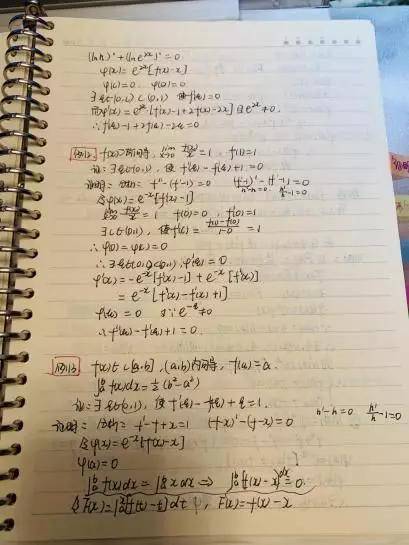 (ln h)' + (ln e^{2x})' = 0
φ(x) = e^{2x}[f(x)-x]
φ(c)=0  φ(0)=0
∃ξ∈(0,c)⊂(0,1) 使φ'(ξ)=0
而φ'(x)=e^{2x}·[f'(x)-1+2f(x)-2x] 且e^{2x}≠0.
∴f'(ξ)-1+2f(ξ)-2ξ=0
例12. f(x)二阶可导, lim_{x→0} f(x)/x = 1, f(1)=1
证:∃ξ∈(0,1), 使f''(ξ)-f'(ξ)+1=0
证明: f''-(f'-1)=0  (f'-1)'-(f'-1)=0
h'-h=0. h'/h-1=0
令φ(x)=e^{-x}[f'(x)-1]
lim_{x→0} f(x)/x = 1  f(0)=0, f'(0)=1
∃c∈(0,1), 使f'(c)= (f(1)-f(0))/(1-0) = 1
∴φ(0)=φ(c)=0
∴∃ξ∈(0,c)⊂(0,1), φ'(ξ)=0
φ'(x)=-e^{-x}[f'(x)-1]+e^{-x}[f''(x)]
= e^{-x}[f''(x)-f'(x)+1]
φ'(ξ)=0  e^{-ξ}≠0
∴f''(ξ)-f'(ξ)+1=0.
例13. f(x)∈C[a,b], (a,b)内可导, f(a)=a.
∫_a^b f(x)dx=½(b²-a²)
证:∃ξ∈(a,b), 使f'(ξ)-f(ξ)+ξ=1.
h'-h=0  h'/h-1=0
证明: f'-f+x=1  (f-x)'-(f-x)=0
令φ(x)=e^{-x}[f(x)-x]
φ(a)=0
∫_a^b f(x)dx=∫_a^b x dx ⇒ ∫_a^b[f(x)-x]dx=0.
令F(x)=∫_a^x[f(t)-t]dt, F'(x)=f(x)-x